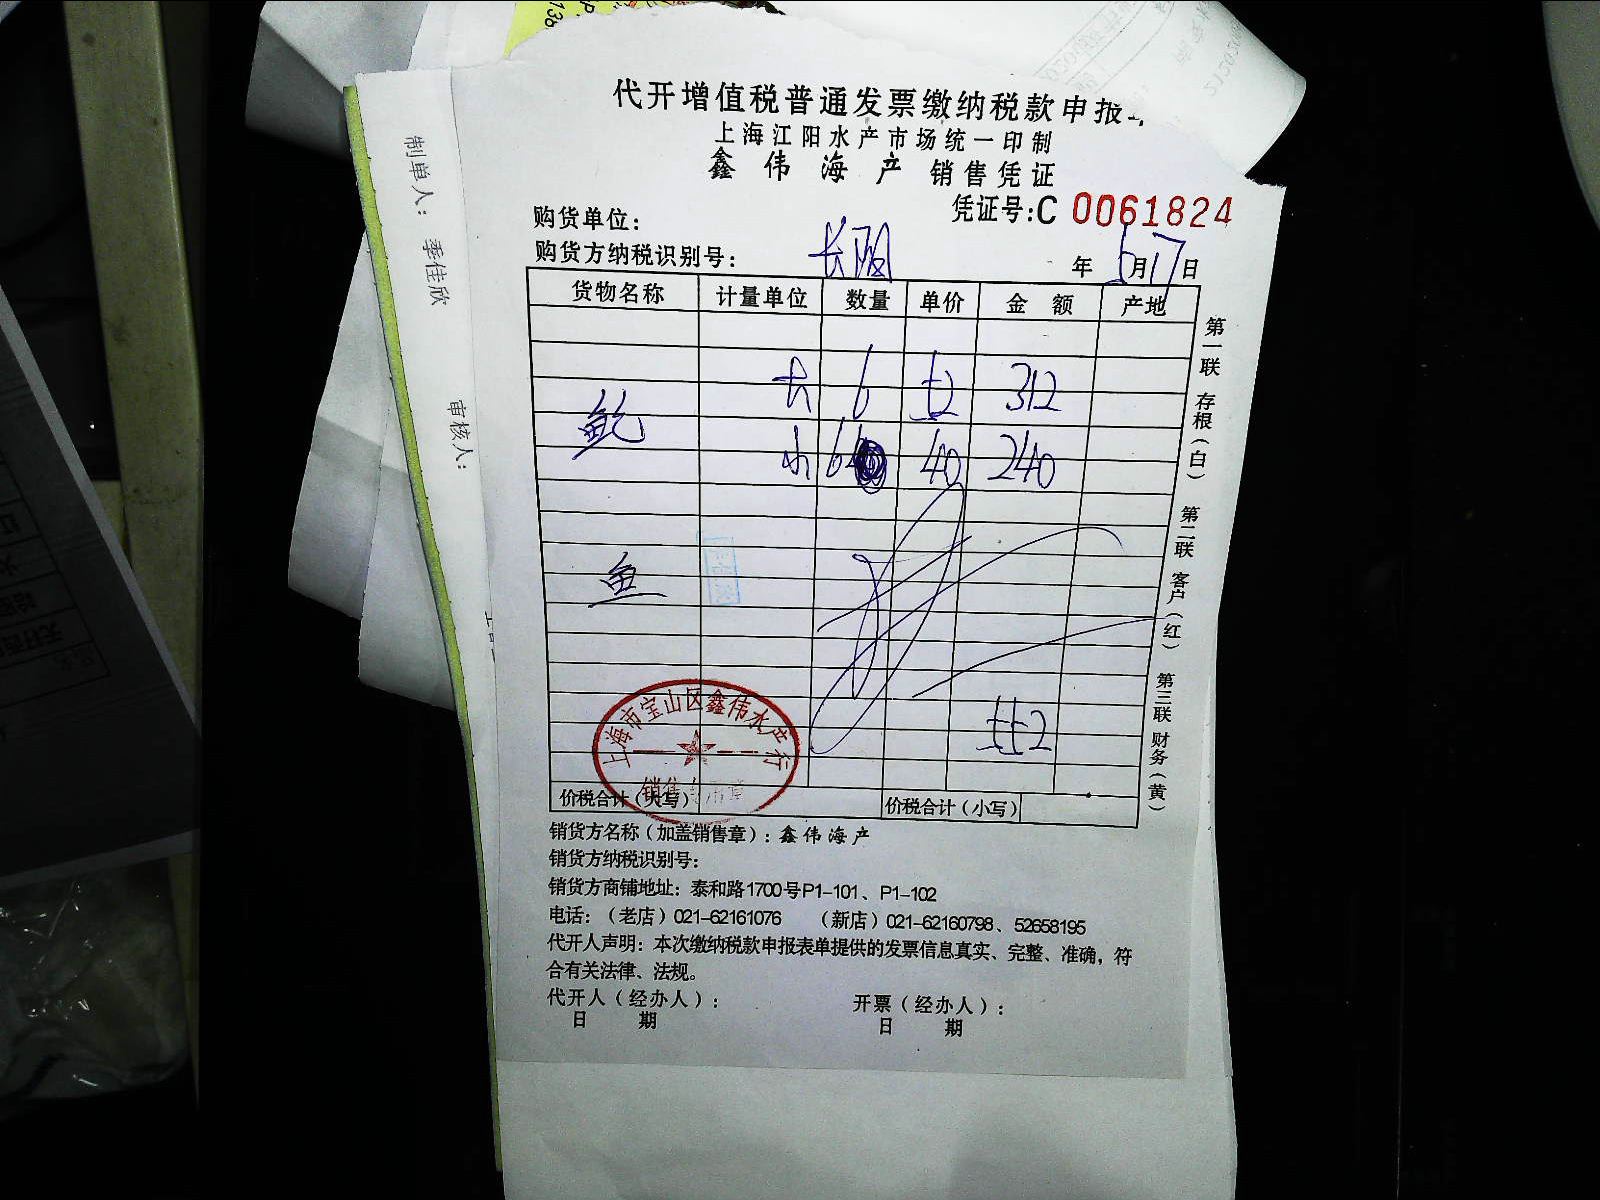 代开增值税普通发票缴纳税款申报
上海江阳水产市场统一印制
鑫伟海产 销售凭证
凭证号:C 0061824
购货单位:
购货方纳税识别号: 长阳 年 5月17日
货物名称 计量单位 数量 单价 金额 产地
大 6 52 312
鲍
小 6 40 240
鱼
552
价税合计（大写） 价税合计（小写）
上海市宝山区鑫伟水产行
销售专用章
第一联 存根（白） 第二联 客户（红） 第三联 财务（黄）
销货方名称（加盖销售章）: 鑫伟海产
销货方纳税识别号:
销货方商铺地址: 泰和路1700号P1-101、P1-102
电话:（老店）021-62161076 （新店）021-62160798、52658195
代开人声明: 本次缴纳税款申报表单提供的发票信息真实、完整、准确，符
合有关法律、法规。
代开人（经办人）: 开票（经办人）:
日 期 日 期
制单人: 季佳欣
审核人: